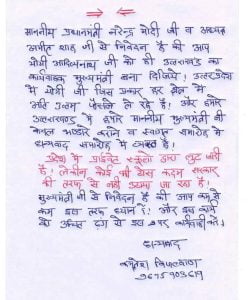 माननीय प्रधानमंत्री नरेन्द्र मोदी जी व अध्यक्ष
अमीत शाह जी से निवेदन है की आप
योगी आदित्यनाथ जी को ही उत्तराखण्ड का
कार्यवाहक मुख्यमंत्री बना दिजिये! उत्तरप्रदेश
में योगी जी जिस प्रकार हर क्षेत्र में
अति उत्तम फैसले ले रहे है! और हमारे
उत्तराखण्ड में हमारे माननीय मुख्यमंत्री जी
केवल भण्डारे कराने व स्वागत समारोह में
धन्यवाद समारोह में व्यस्त है!
प्रदेश में प्राईवेट स्कूलो द्वारा लुट मची
है! लेकीन कोई भी ठोस कदम सरकार
की तरफ से नही उठाया जा रहा है!
मुख्यमंत्री जी से निवेदन है की आप कम से
कम इस तरफ ध्यान दे! और इस कार्य
को उचित ढंग से इस पर कार्यवाही करे!
धन्यवाद
9675903619